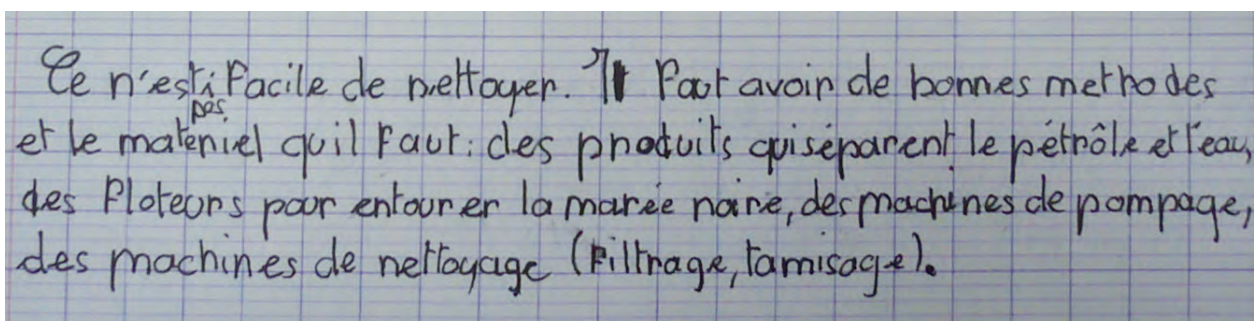 Ce n'est pas facile de nettoyer. Il faut avoir de bonnes methodes
et le materiel qu'il faut : des produits qui séparent le pétrôle et l'eau,
des floteurs pour entourer la marée noire, des machines de pompage,
des machines de nettoyage (filtrage, tamisage).